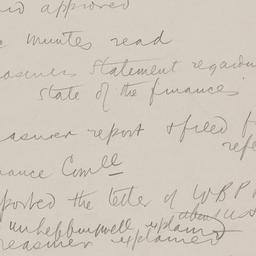 and approved
minutes read
easurers Statement regardin
State of the finances
easurer report & filed f
refe
nance Com^ee
ported the letter of W B P
explain
Treasurer explained